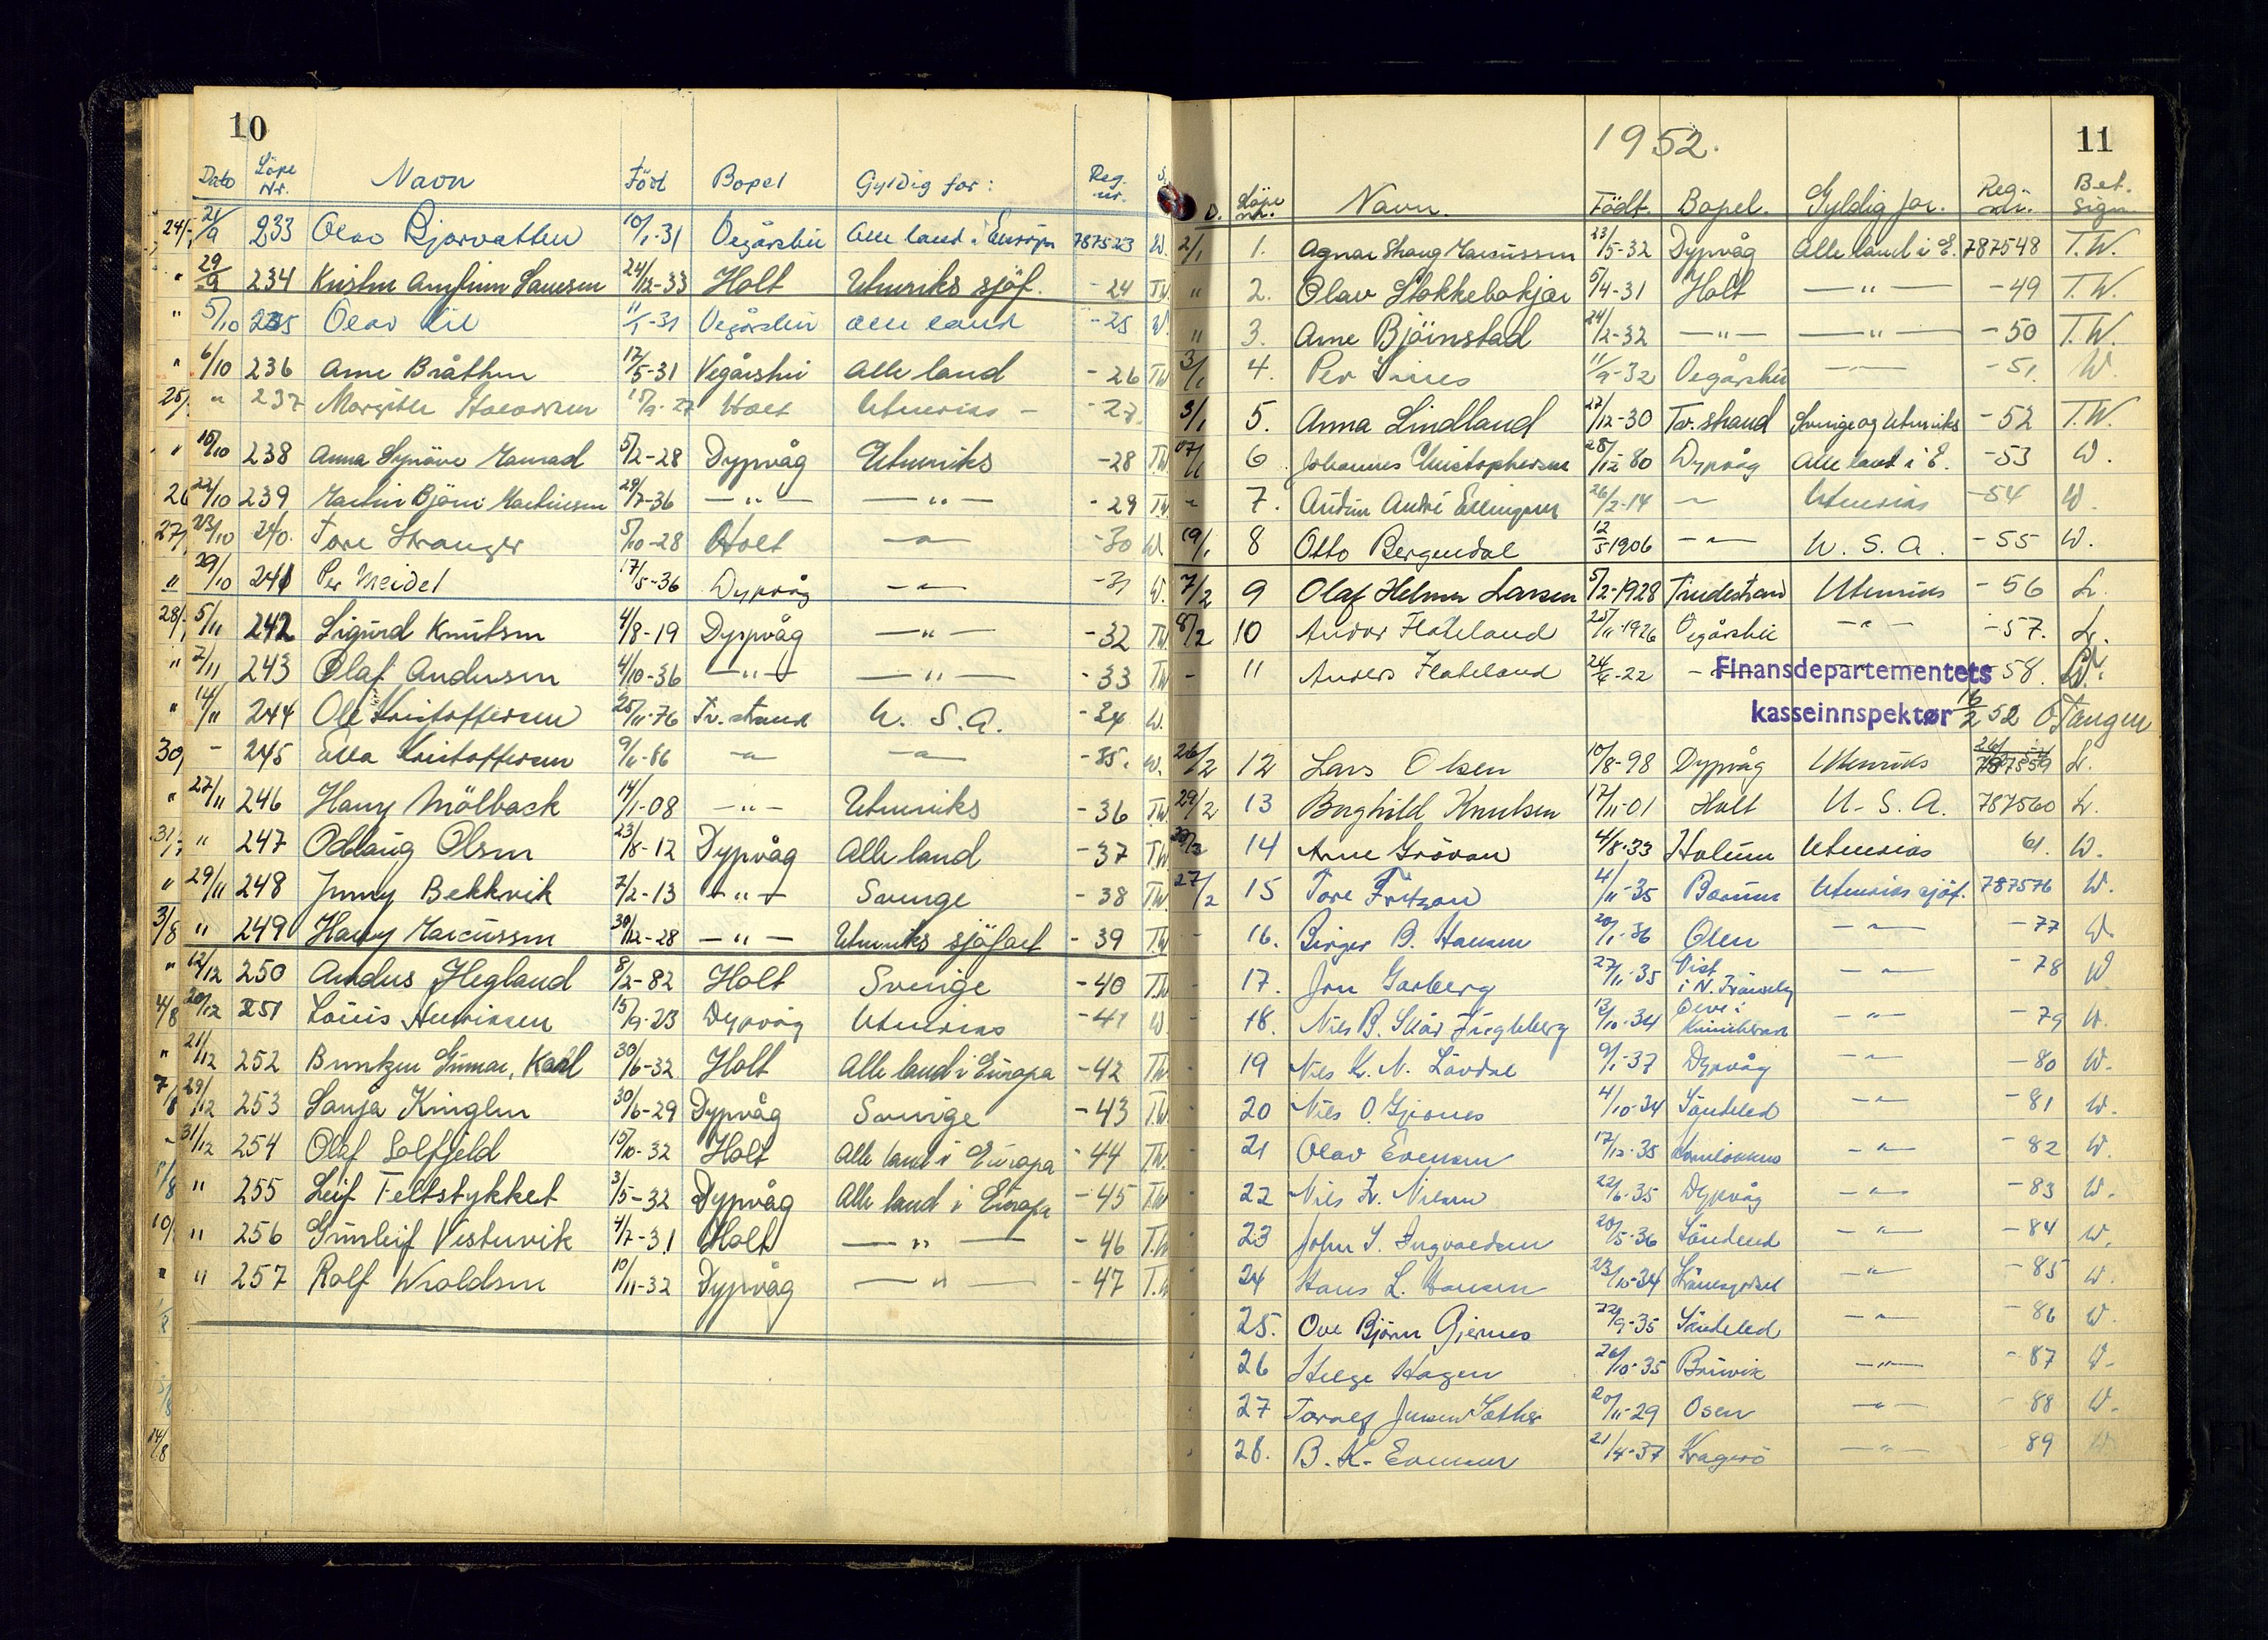 10
Dato Löpe Nr. Navn Född Bopel Gyldig for: Reg. nr. S.
24/ 21/9 233 Olav Bjorvatten 10/1-31 Vegårshei Alle land i Europa 787523 W.
" 29/9 234 24/12-33 Holt Utenriks sjöf. -24 T.W.
" 5/10 235 Olav Lie 11/1-31 Vegårshei Alle land -25 W.
" 6/10 236 Arne Bråthen 17/5-31 Vegårshei Alle land -26 T.W.
25/ " 237 Margithe Halvorsen 15/9-27 Holt Utenriks - -27
" 15/10 238 Anna Synöve 5/2-28 Dypvåg Utenriks -28 T.W.
26 22/10 239 Martin Björn Martinsen 29/7-36 -"- -"- -29 T.W.
27/ 23/10 240. Tore Stranger 5/10-28 Holt -"- -30 W
" 29/10 241 Per Meidel 17/5-36 Dypvåg -"- -31 W.
28/ 5/11 242 Sigurd Knutsen 4/8-19 Dypvåg -"- -32 T.W.
" 7/11 243 Olaf Andersen 4/10-36 -"- -"- -33 T.W.
" 14/11 244 Ole Kristoffersen 25/11-76 Tv. strand U. S. A. -34 W.
30/ - 245 Ella Kristoffersen 9/11-86 -"- -"- -35. W.
" 27/11 246 Harry Mölback 14/1-08 -"- Utenriks -36 T.W.
31/7 " 247 Odlaug Olsen 23/8-12 Dypvåg Alle land -37 T.W.
" 29/11 248 Jenny Bekkvik 7/2-13 -"- Sverige -38 T.W.
3/8 " 249 Harry Marcussen 30/12-28 -"- Utenriks sjöfart -39 T.W.
" 12/12 250 Anders Hegland 8/2-82 Holt Sverige -40 T.W.
4/8 20/12 251 Louis Henriksen 15/9-23 Dypvåg Utenriks -41 W
" 21/12 252 Berntzen Gunnar, Karl 30/6-32 Holt Alle land i Europa -42 T.W.
7/8 29/12 253 Sonja Kinglen 30/6-29 Dypvåg Sverige -43 T.W.
- 31/12 254 Olaf Solfjeld 15/10-32 Holt Alle land i Europa -44 T.W.
8/8 " 255 Leif Feltstykket 3/5-32 Dypvåg Alle land i Europa -45 T.W.
10/ " 256 Gunleif Vestervik 4/7-31 Holt -"- -46 T.W.
" " 257 Rolf Wroldsen 10/11-32 Dypvåg -"- -47 T.W.
14/8
1952.
11
D. Löpe nr. Navn. Födt. Bopel. Gyldig for. Reg. nr. Bet. Sign.
2/1 1. Agnar Strang Marcussen 23/5-32 Dypvåg Alle land i E. 787548 T.W.
" 2. Olav Stokkebokjær 5/4-31 Holt -"- -49 T.W.
" 3. Arne Björnstad 24/2-32 -"- -"- -50 T.W.
3/1 4. Per 11/9-32 Vegårshei -"- -51 W.
3/1 5. Anna Lindland 27/12-30 Tv. strand Sverige og Utenriks -52 T.W.
6 Johannes Christophersen 28/12-80 Dypvåg Alle land i E. -53 W.
" 7. Audun André Ellingsen 26/2-14 - Utenriks -54 W.
19/1 8 Otto Bergendal 12/5 1906 -"- U. S. A. -55 W.
7/2 9 Olaf Helmer Larsen 5/2-1928 Tvedestrand Utenriks -56 L.
8/2 10 Andor Flateland 25/11-1926 Vegårshei -"- -57. L.
- 11 Anders Flateland 24/6-22 - -58. W.
Finansdepartementets
kasseinnspektør 16/2 52 O Tangen
26/2 12 Lars Olsen 10/8-98 Dypvåg Utenriks 787559 L.
29/2 13 Borghild Knutsen 17/11-01 Holt U. S. A. 787560 L.
14 Arne Grövan 4/8-33 Holum Utenriks 61. W.
27/2 15 Tore Fritzon 4/11-35 Bærum Utenriks sjöf. 787576 W.
- 16. Birger B. Hansen 20/1-36 Ölen -"- -77 W.
- 17. Jon Garberg 27/11-35 -"- -78 W
- 18. Nils B. 13/10-34 -"- -79 W.
- 19 Nils K. N. Lövdal 9/1-37 Dypvåg -"- -80 W.
- 20 Nils O. Gjernes 4/10-34 Söndeled -"- -81 W.
- 21 Olav Evensen 17/12-35 -"- -82 W.
- 22 Nils Kr. Nilsen 22/6-35 Dypvåg -"- -83 W.
" 23 John S. Ingvaldsen 20/5-36 Söndeled -"- -84 W.
" 24 Hans L. Hansen 23/10-34 -"- -85 W.
" 25. Ove Björn Gjernes 22/9-35 Söndeled -"- -86 W.
" 26 Helge Hagen 26/10-35 Bruvik -"- -87 W.
" 27 Toralf Jensen Sæther 20/11-29 Osen -"- -88 W.
" 28. B. K. Evensen 21/4-37 Kragerö -"- 89 W